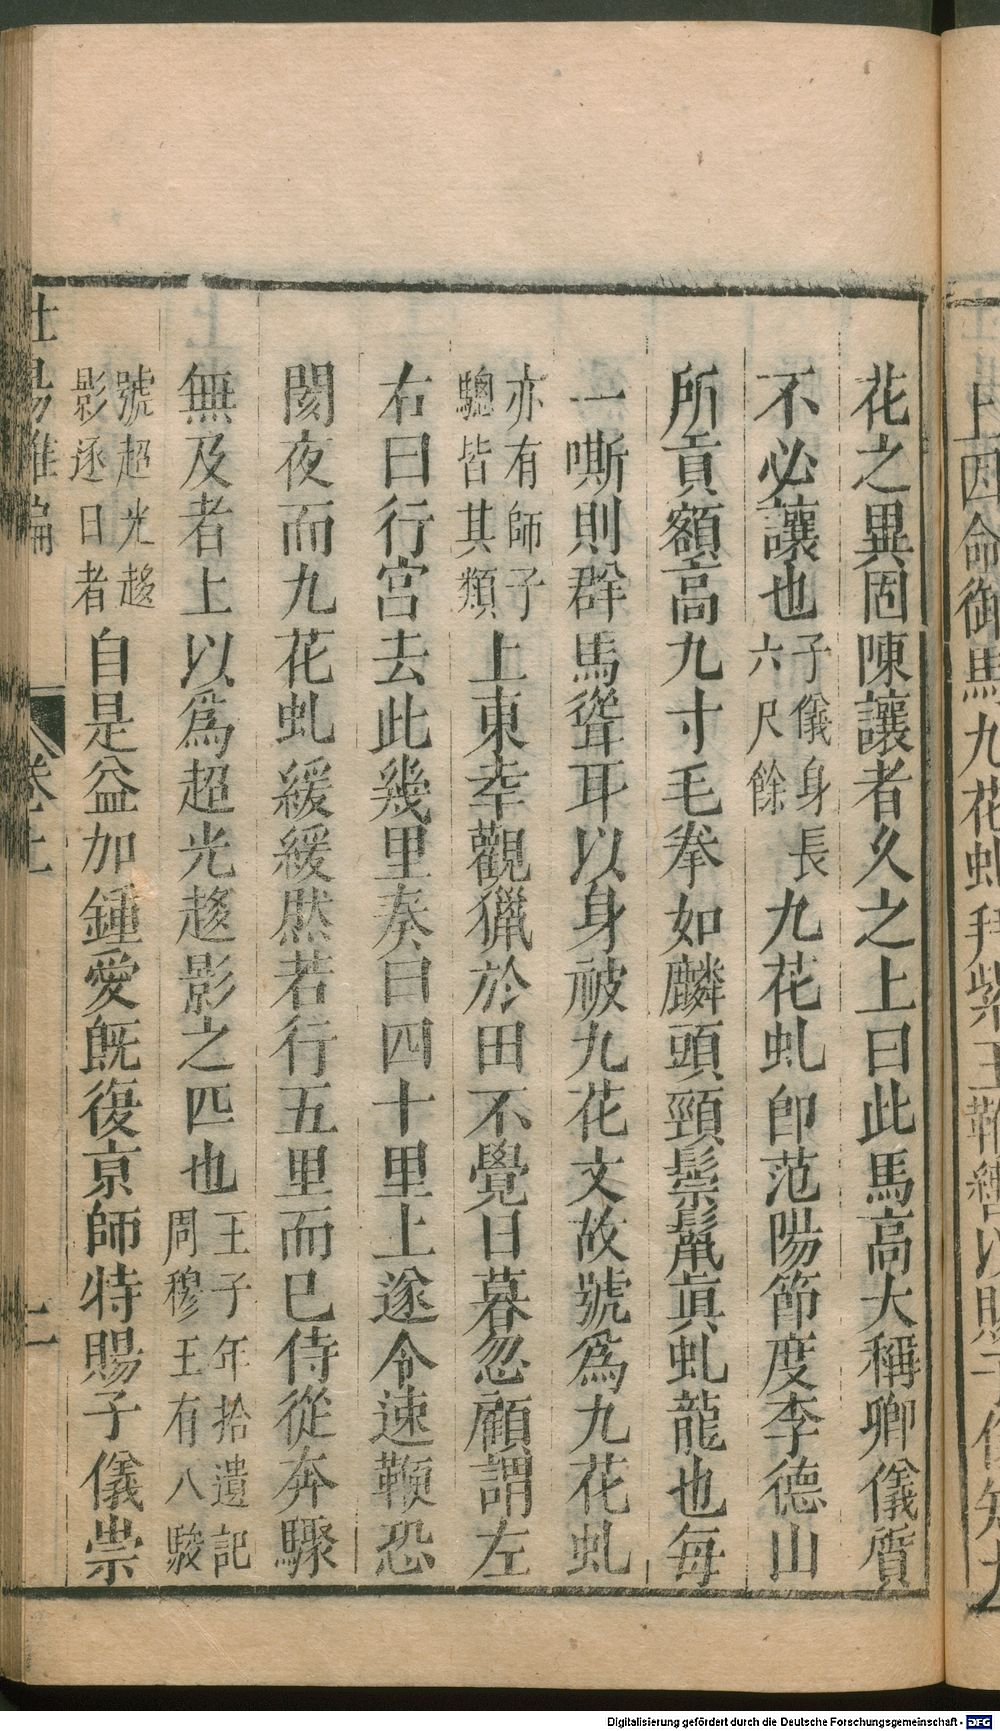 上因命御馬九花虬拜紫玉鞭轡以賜子儀知九
花之異固陳讓者久之上曰此馬高大稱卿儀質
不必讓也子儀身長六尺餘九花虬即范陽節度李德山
所貢額高九寸毛拳如麟頭頸鬃鬣眞虬龍也每
一嘶則群馬聳耳以身被九花文故號爲九花虬
亦有師子驄皆其類上東幸觀獵於田不覺日暮忽顧謂左
右曰行宮去此幾里奏曰四十里上遂令速鞭恐
閡夜而九花虬緩緩然若行五里而已侍從奔驟
無及者上以爲超光趍影之匹也王子年拾遺記周穆王有八駿
號超光趍影逐日者自是益加鍾愛旣復京師特賜子儀崇
杜陽雜編 卷上 七
Digitalisierung gefördert durch die Deutsche Forschungsgemeinschaft - DFG